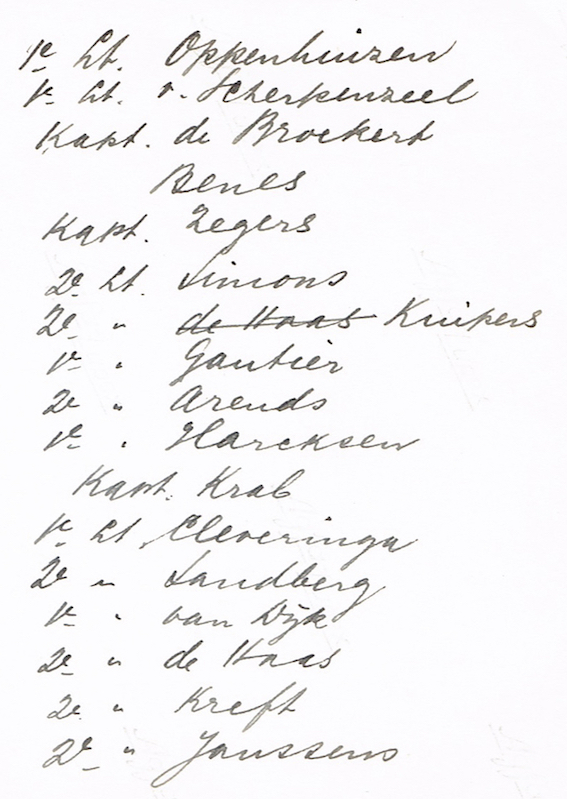 1e Lt. Oppenhuizen
1e Lt. v. Scherpenzeel
Kapt. de Broekert
Benes
Kapt. Zegers
2e Lt. Simons
2e " de Haas Kuipers
1e " Gautier
2e " Arends
1e " Harcksen
Kapt. Krab
1e Lt. Cleveringa
2e " Landberg
1e " van Dijk
2e " de Haas
2e " Kreft
2e " Janssens